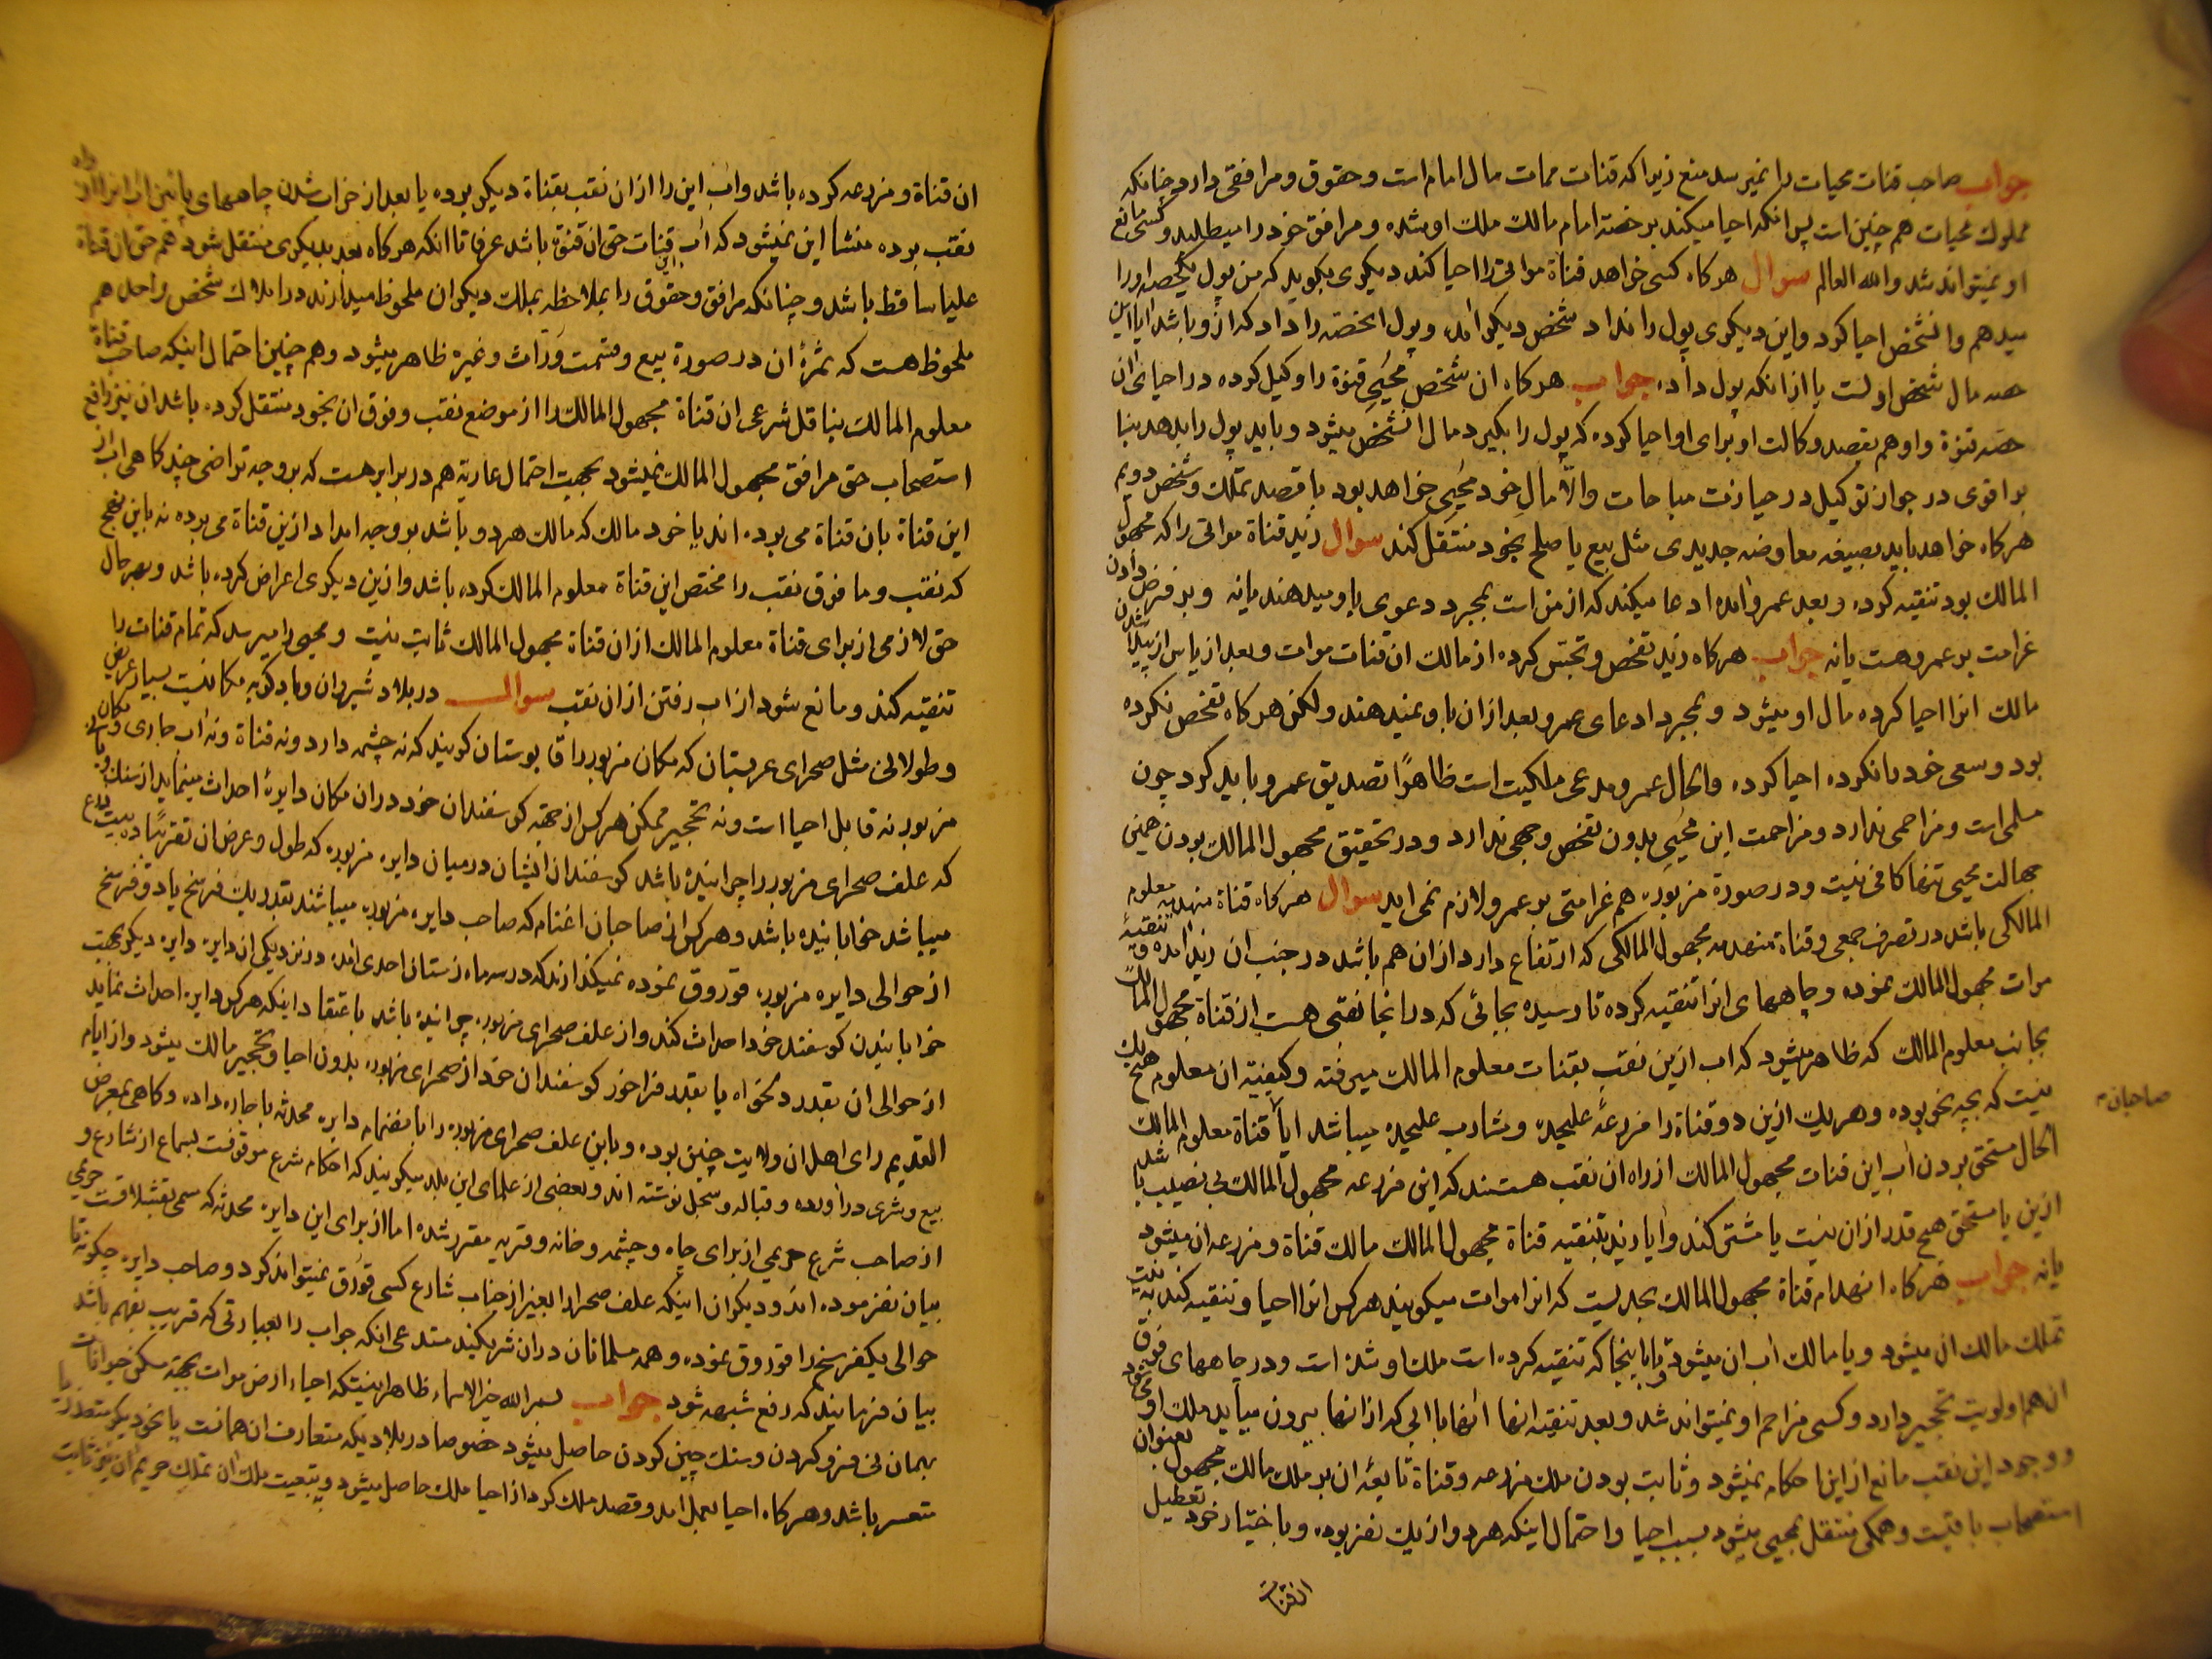 جواب صاحب قنات محیات را نمیرسد منع زیرا که قنات ممات مال امام است و حقوق و مرافقی دارد چنانکه
مملوک محیات هم چنین است پس انکه احیا میکند برخصة امام مالک ملک او شده و مرافق خود را میطلبد و کسی مانع
او نمیتواند شد والله العالم سوال هرکاه کسی خواهد قناة مواتی را احیا کند دیکری بکوید که من پول یکحصه او را
میدهم و انشخص احیا کرد و این دیکری پول را نداد شخص دیکر امد و پول انحصه را داد که از او باشد ایا این
حصه مال شخص اولست یا از انکه پول داده جواب هرکاه ان شخص محیی قنوة را وکیل کرده در احیای ان
حصه قنوة و او هم بقصد وکالت او برای او احیا کرده که پول را بکیرد مال انشخص میشود و باید پول را بدهد بنا
بر اقوی در جواز توکیل در حیازت مباحات والّا مال خود محیی خواهد بود با قصد تملک و شخص دویم
هرکاه خواهد باید بصیغه معاوضه جدیدی مثل بیع یا صلح بخود منتقل کند سوال زید قناة مواتی را که مجهول
المالک بود تنقیه کرده و بعد عمرو امده ادعا میکند که از من است بمجرد دعوی باو میدهند یا نه و بر فرض دادن
غرامت بر عمرو هست یا نه جواب هرکاه زید تفحص و تجسّس کرده از مالک ان قنات موات و بعد از یاس از پیدا شدن
مالک انرا احیا کرده مال او میشود و بمجرد ادعای عمرو بعد از ان باو نمیدهند و لکن هرکاه تفحص نکرده
بود و سعی خود را نکرده احیا کرده و الحال عمرو مدعی ملکیت است ظاهرًا تصدیق عمرو باید کرد چون
مسلمی است و مزاحمی ندارد و مزاحمت این محیی بدون تفحص وجهی ندارد و در تحقیق مجهول المالک بودن همین
جهالت محیی تنها کافی نیست و در صورة مزبوره هم غرامتی بر عمرو لازم نمی اید سوال هرکاه قناة منهدمه معلوم
المالکی باشد در تصرف جمعی و قناة منهدمه مجهول المالکی که ارتفاع دارد از ان هم باشد در جنب ان زید امده و تنقیهٔ
موات مجهول المالک نموده و چاههای انرا تنقیه کرده تا رسیده بجائی که در انجا نقبی هست از قناة مجهول المالک
بجانب معلوم المالک که ظاهر میشود که اب ازین نقب بقنات معلوم المالک میرفته و کیفیّة ان معلوم هیچ یک
نیست که بچه نحو بوده و هر یک ازین دو قناة را مزرعهٔ علیحده و مشارب علیحده میباشد ایا قناة معلوم المالک
الحال مستحق بردن اب این قنات مجهول المالک از راه ان نقب هستند که این مزرعه مجهول المالک بی نصیب باشد
ازین یا مستحق هیچ قدر از ان نیست یا مشتری کند و ایا زید بتنقیه قناة مجهول المالک مالک قناة و مزرعه ان میشود
یا نه جواب هرکاه انهدام قناة مجهول المالک بحدیست که انرا موات میکویند هرکس انرا احیا و تنقیه کند به نیت
تملک مالک ان میشود و یا مالک اب ان میشود و تا اینجا که تنقیه کرده است ملک او شده است و در چاههای فوق
ان هم اولویت تحجیر دارد و کسی مزاحم او نمیتواند شد و بعد تنقیه انها انها با ابی که از انها بیرون میاید ملک او میشود
و وجود این نقب مانع از این احکام نمیشود و ثابت بودن ملک مزرعه و قناة تابعهٔ ان بر ملک مالک مجهول بعنوان
استصحاب باقیست و همکی منتقل بمحیی میشود بسبب احیا و احتمال اینکه هر دو از یک نفر بوده و باختیار خود تعطیل
ان قنات
صاحبان
ان قناة و مزرعه کرده باشد و اب این را از ان نقب بقناة دیکر برده یا بعد از خراب شدن چاههای پائین اب انرا از راه
نقب برده منشا این نمیشود که اب قنات حق ان قنوة باشد عرفا تا انکه هرکاه بعد بدیکری منتقل شود هم حق ان قناة
علیا ساقط باشد و چنانکه مرافق و حقوق را بملاحظه بملک دیکران ملحوظ میدارند در املاک شخص واحد هم
ملحوظ هست که ثمرهٔ ان در صورة بیع و قسمت وراث و غیره ظاهر میشود و هم چنین احتمال اینکه صاحب قناة
معلوم المالک بناقل شرعی ان قناة مجهول المالک را از موضع نقب و فوق ان بخود منتقل کرده باشد ان نیز رافع
استصحاب حق مرافق مجهول المالک نمیشود بجهت احتمال عاریة هم در برابر هست که بر وجه تراضی چند کاهی اب از
این قناة بان قناة می برده اند یا خود مالک که مالک هر دو باشد بر وجه امداد ازین قناة می برده نه باین نهج
که نقب و ما فوق نقب را مختص این قناة معلوم المالک کرده باشد و ازین دیکری اعراض کرده باشد و بهر حال
حق لازمی از برای قناة معلوم المالک از ان قناة مجهول المالک ثابت نیست و محیی را میرسد که تمام قنات را
تنقیه کند و مانع شود از اب رفتن از ان نقب سوال در بلاد شیروان و بادکوبه مکانیست بسیار عریض
و طولانی مثل صحرای عربستان که مکان مزبور را قابوستان کویند که نه چشمه دارد و نه قناة و نه اب جاری و مکان
مزبور نه قابل احیا است و نه تحجیر ممکن هرکس از جهة کوسفندان خود در ان مکان دایرهٔ احداث مینماید از سنک و یا نی
که علف صحرای مزبور را چرانیده باشد کوسفندان ایشان در میان دایره مزبوره که طول و عرض ان تقریبًا ده بیست ذراع
میباشد خوابانیده باشد و هرکس از صاحبان اغنام که صاحب دایره مزبوره میباشند بقدر یک فرسخ یا دو فرسخ
از حوالی دایره مزبوره قوروق نموده نمیکذارند که در سه ماه زمستان احدی امده در نزدیکی ان دایره دایره دیکر بجهت
خوابانیدن کوسفند خود احداث کند و از علف صحرای مزبوره چرانیده باشد باعتقاد اینکه هرکس دایره احداث نماید
از حوالی ان بقدر دلخواه یا بقدر فراخور کوسفندان خود از صحرای مزبوره بدون احیا و تحجیر مالک میشود و از ایام
القدیم رای اهل ان ولایت چنین بوده و باین علف صحرای مزبوره را بانضمام دایره محدثه باجاره داده و کاهی بمعرض
بیع و شری در اورده و قباله و سجل نوشته اند و بعضی از علمای این بلد میکویند که احکام شرع موقوفست بسماع از شارع و
از صاحب شرع حریمی از برای چاه و چشمه و خانه و قریه مقرر شده اما از برای این دایره محدثه که مسمی بقشلاقست حریمی
بیان نفرموده اند و دیکران اینکه علف صحرا را بغیر از جناب شارع کسی قوُرُق نمیتواند کرد و صاحب دایره چکونه تا
حوالی یکفرسخ را قوروق نموده و همه مسلمانان در ان شریکند مستدعی انکه جواب را بعبارتی که قریب بفهم باشد
بیان فرمایند که رفع شبهه شود جواب بسم الله خیر الاسماء ظاهر اینستکه احیاء ارض موات بجهة مسکن حیوانات
بهمان نی فرو کردن و سنک چین کردن حاصل میشود خصوصا در بلادیکه متعارف ان همانست یا نحو دیکر متعذر یا
متعسر باشد و هرکاه احیا بعمل امد و قصد ملک کرد از احیا ملک حاصل میشود و بتبعیت ملک ان تملک حریم ان نیز ثابت